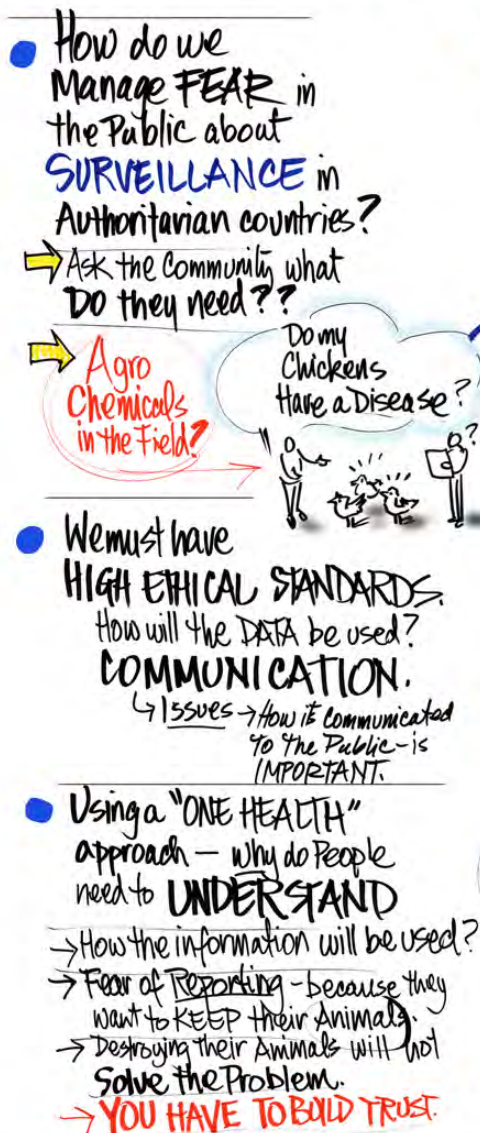 How do we
Manage FEAR in
the Public about
SURVEILLANCE in
Authoritarian countries?
Ask the Community what
DO they need??
Agro
Chemicals
in the Field?
Do my
Chickens
Have a Disease?
?
We must have
HIGH ETHICAL STANDARDS.
How will the DATA be used?
COMMUNICATION.
Issues → How it communicated
to the Public - is
IMPORTANT.
Using a "ONE HEALTH"
approach — why do People
need to UNDERSTAND
→ How the information will be used?
→ Fear of Reporting - because they
want to KEEP their Animals.
→ Destroying their Animals will not
Solve the Problem.
→ YOU HAVE TO BUILD TRUST.